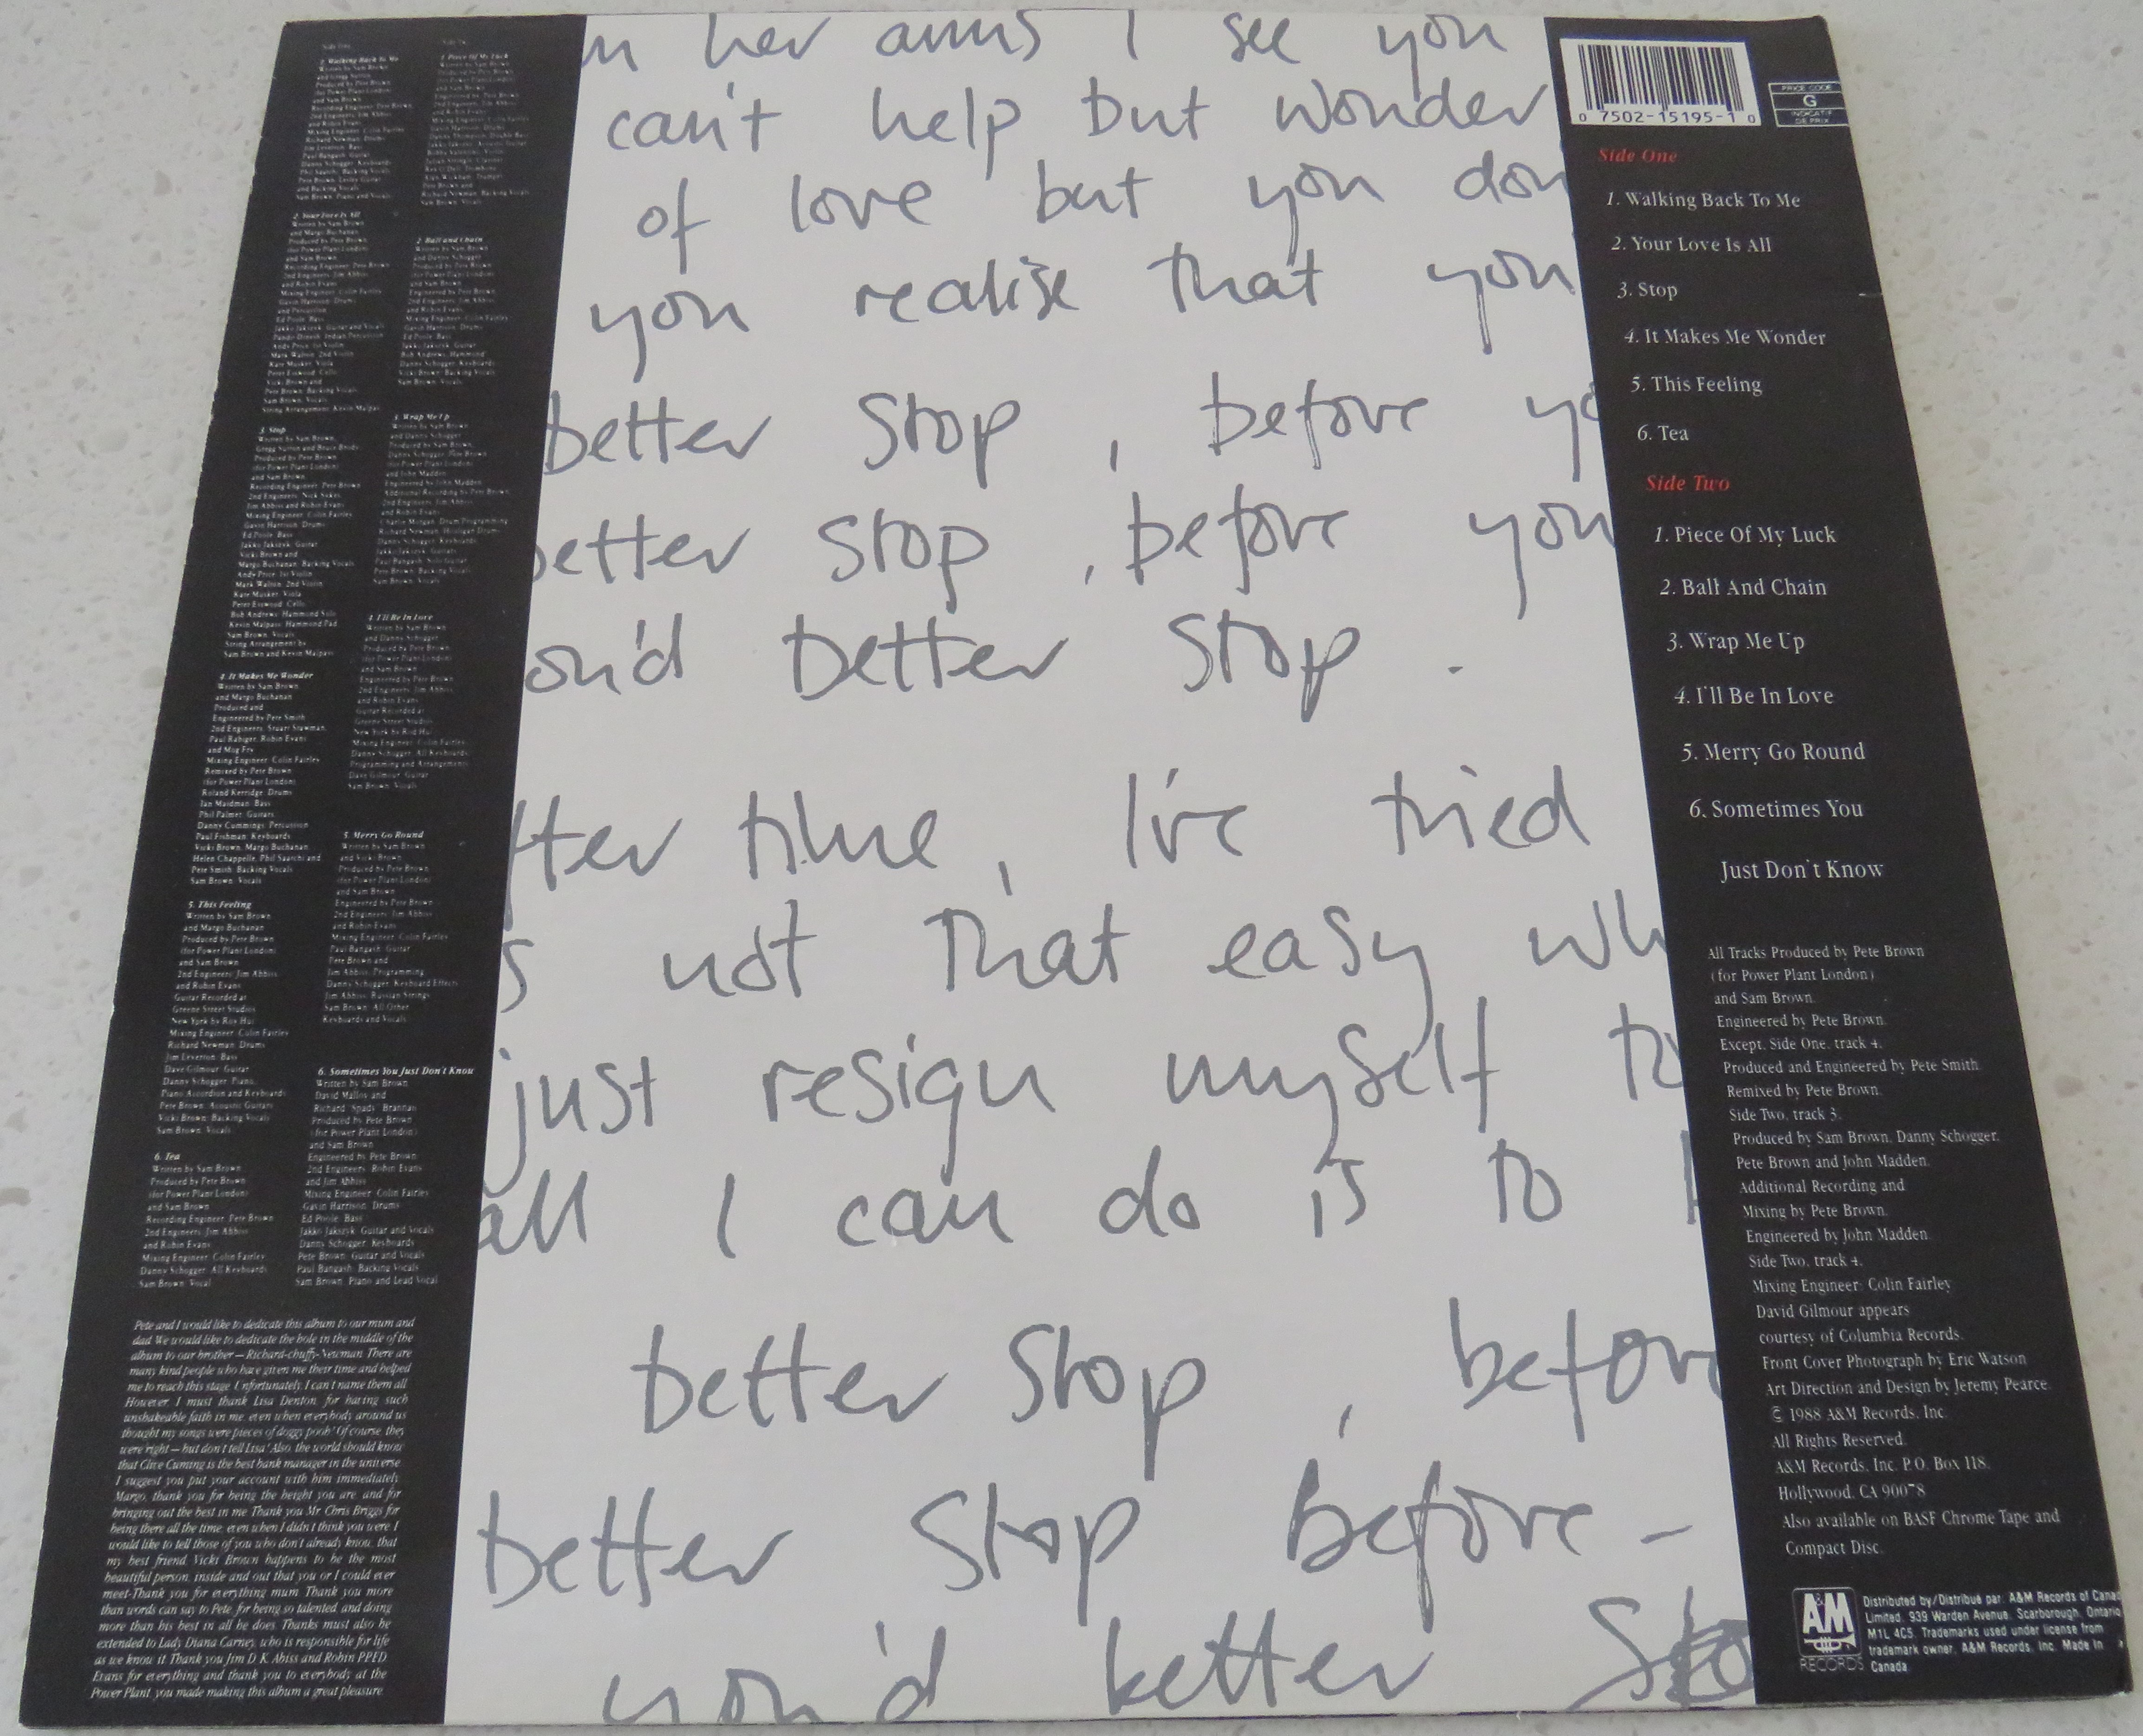 Side One
1. Walking Back To Me
Written by Sam Brown
and Gregg Sutton
Produced by Pete Brown
(for Power Plant London)
and Sam Brown
Recording Engineer: Pete Brown
2nd Engineers: Jim Abbiss
and Robin Evans
Mixing Engineer: Colin Fairley
Richard Newman: Drums
Jim Leverton: Bass
Paul Bangash: Guitar
Danny Schogger: Keyboards
2. Your Love Is All
Written by Sam Brown
and Margo Buchanan
Produced by Pete Brown
(for Power Plant London)
and Sam Brown
Recording Engineer: Pete Brown
2nd Engineers: Jim Abbiss
and Robin Evans
Mixing Engineer: Colin Fairley
Gavin Harrison: Drums
and Percussion
Ed Poole: Bass
Jakko Jakszyk: Guitar and Vocals
Pandit Dinesh: Indian Percussion
Andy Price: 1st Violin
Mark Walton: 2nd Violin
Kate Musker: Viola
Peter Esswood: Cello
Vicki Brown and
Pete Brown: Backing Vocals
Sam Brown: Vocals
String Arrangement: Kevin Malpass
3. Stop
Written by Sam Brown,
Gregg Sutton and Bruce Brody
Produced by Pete Brown
(for Power Plant London)
and Sam Brown
Recording Engineer: Pete Brown
2nd Engineers: Nick Sykes
Jim Abbiss and Robin Evans
Mixing Engineer: Colin Fairley
Gavin Harrison: Drums
Ed Poole: Bass
Jakko Jakszyk: Guitar
Vicki Brown and
Margo Buchanan: Backing Vocals
Andy Price: 1st Violin
Mark Walton: 2nd Violin
Kate Musker: Viola
Peter Esswood: Cello
Bob Andrews: Hammond Solo
Kevin Malpass: Hammond Pad
Sam Brown: Vocals
String Arrangement by
Sam Brown and Kevin Malpass
4. It Makes Me Wonder
Written by Sam Brown
and Margo Buchanan
Produced and
Engineered by Pete Smith
2nd Engineers: Stuart
Paul Rabiger, Robin Evans
and Mog Fry
Mixing Engineer: Colin Fairley
Remixed by Pete Brown
(for Power Plant London)
Roland Kerridge: Drums
Ian Maidman: Bass
Phil Palmer: Guitars
Danny Cummings: Percussion
Paul Fishman: Keyboards
Vicki Brown, Margo Buchanan,
Helen Chappelle, Phil Saatchi and
Pete Smith: Backing Vocals
Sam Brown: Vocals
5. This Feeling
Written by Sam Brown
and Margo Buchanan
Produced by Pete Brown
(for Power Plant London)
and Sam Brown
2nd Engineers: Jim Abbiss
and Robin Evans
Guitar Recorded at
Greene Street Studios
New York by Rod Hui
Mixing Engineer: Colin Fairley
Richard Newman: Drums
Jim Leverton: Bass
Dave Gilmour: Guitar
Danny Schogger: Piano,
Piano Accordion and Keyboards
Pete Brown: Acoustic Guitars
Vicki Brown: Backing Vocals
Sam Brown: Vocals
6. Tea
Written by Sam Brown
Produced by Pete Brown
(for Power Plant London)
and Sam Brown
Recording Engineer: Pete Brown
2nd Engineers: Jim Abbiss
and Robin Evans
Mixing Engineer: Colin Fairley
Danny Schogger: All Keyboards
Sam Brown: Vocal
1. Piece Of My Luck
2. Ball and Chain
Written by Sam Brown
and Danny Schogger
Produced by Pete Brown
(for Power Plant London)
and Sam Brown
Engineered by Pete Brown
2nd Engineers: Jim Abbiss
and Robin Evans
Mixing Engineer: Colin Fairley
Gavin Harrison: Drums
Ed Poole: Bass
Jakko Jakszyk: Guitar
Bob Andrews: Hammond
Danny Schogger: Keyboards
Vicki Brown: Backing Vocals
Sam Brown: Vocals
3. Wrap Me Up
Written by Sam Brown
and Danny Schogger
Produced by Sam Brown,
Danny Schogger, Pete Brown
(for Power Plant London)
and John Madden
Engineered by John Madden
Additional Recording by Pete Brown
2nd Engineers: Jim Abbiss
and Robin Evans
Charlie Morgan: Drum Programming
Danny Schogger: Keyboards
Jakko Jakszyk: Guitars
Paul Bangash: Solo Guitar
Pete Brown: Backing Vocals
Sam Brown: Vocals
4. I'll Be In Love
Written by Sam Brown
and Danny Schogger
Produced by Pete Brown
(for Power Plant London)
and Sam Brown
Engineered by Pete Brown
2nd Engineers: Jim Abbiss
and Robin Evans
Guitar Recorded at
Greene Street Studios
New York by Rod Hui
Mixing Engineer: Colin Fairley
Danny Schogger: All Keyboards,
Programming and Arrangements
Dave Gilmour: Guitar
Sam Brown: Vocals
5. Merry Go Round
Written by Sam Brown
and Vicki Brown
Produced by Pete Brown
(for Power Plant London)
and Sam Brown
Engineered by Pete Brown
2nd Engineers: Jim Abbiss
and Robin Evans
Mixing Engineer: Colin Fairley
Paul Bangash: Guitar
Pete Brown and
Jim Abbiss: Programming
Danny Schogger: Keyboard Effects
Jim Abbiss: Russian Strings
Sam Brown: All Other
Keyboards and Vocals
6. Sometimes You Just Don't Know
Written by Sam Brown
David Malloy and
Richard 'Spady' Brannan
Produced by Pete Brown
(for Power Plant London)
and Sam Brown
Engineered by Pete Brown
2nd Engineers: Robin Evans
and Jim Abbiss
Mixing Engineer: Colin Fairley
Gavin Harrison: Drums
Ed Poole: Bass
Jakko Jakszyk: Guitar and Vocals
Danny Schogger: Keyboards
Pete Brown: Guitar and Vocals
Paul Bangash: Backing Vocals
Sam Brown: Piano and Lead Vocal
Pete and I would like to dedicate this album to our mum and
dad. We would like to dedicate the hole in the middle of the
album to our brother — Richard-chuffy-Newman. There are
many kind people who have given me their time and helped
me to reach this stage. Unfortunately I can't name them all.
However, I must thank Lisa Denton, for having such
unshakeable faith in me, even when everybody around us
thought my songs were pieces of doggy pooh! Of course, they
were right — but don't tell Lisa! Also, the world should know
that Clive Cuming is the best bank manager in the universe.
I suggest you put your account with him immediately.
Margo, thank you for being the height you are, and for
bringing out the best in me. Thank you Mr. Chris Briggs for
being there all the time, even when I didn't think you were. I
would like to tell those of you who don't already know, that
my best friend, Vicki Brown happens to be the most
beautiful person, inside and out that you or I could ever
meet-Thank you for everything mum. Thank you more
than words can say to Pete, for being so talented, and doing
more than his best in all he does. Thanks must also be
extended to Lady Diana Carney, who is responsible for life
as we know it. Thank you Jim D.K. Abiss and Robin P.P.E.D.
Evans for everything and thank you to everybody at the
Power Plant, you made making this album a great pleasure.
n her arms I see you
can't help but wonder
of love but you don
you realise that you
better stop, before yo
better stop, before you
ou'd better stop.
fter time, I've tried
s not that easy wh
just resign myself to
all I can do is to
better stop, befor
better stop before -
you'd better Sto
0 7502-15195-1 0
PRICE CODE
G
INDICATIF
DE PRIX
Side One
1. Walking Back To Me
2. Your Love Is All
3. Stop
4. It Makes Me Wonder
5. This Feeling
6. Tea
Side Two
1. Piece Of My Luck
2. Ball And Chain
3. Wrap Me Up
4. I'll Be In Love
5. Merry Go Round
6. Sometimes You
Just Don't Know
All Tracks Produced by Pete Brown
(for Power Plant London)
and Sam Brown.
Engineered by Pete Brown.
Except, Side One, track 4.
Produced and Engineered by Pete Smith.
Remixed by Pete Brown.
Side Two, track 3.
Produced by Sam Brown, Danny Schogger,
Pete Brown and John Madden.
Additional Recording and
Mixing by Pete Brown.
Engineered by John Madden.
Side Two, track 4.
Mixing Engineer: Colin Fairley
David Gilmour appears
courtesy of Columbia Records.
Front Cover Photograph by Eric Watson
Art Direction and Design by Jeremy Pearce.
© 1988 A&M Records, Inc.
All Rights Reserved.
A&M Records, Inc. P.O. Box 118,
Hollywood, CA 90078
Also available on BASF Chrome Tape and
Compact Disc.
A&M
RECORDS
Distributed by/Distribué par: A&M Records of Cana
Limited, 939 Warden Avenue, Scarborough, Ontario
M1L 4C5. Trademarks used under license from
trademark owner, A&M Records, Inc. Made in
Canada